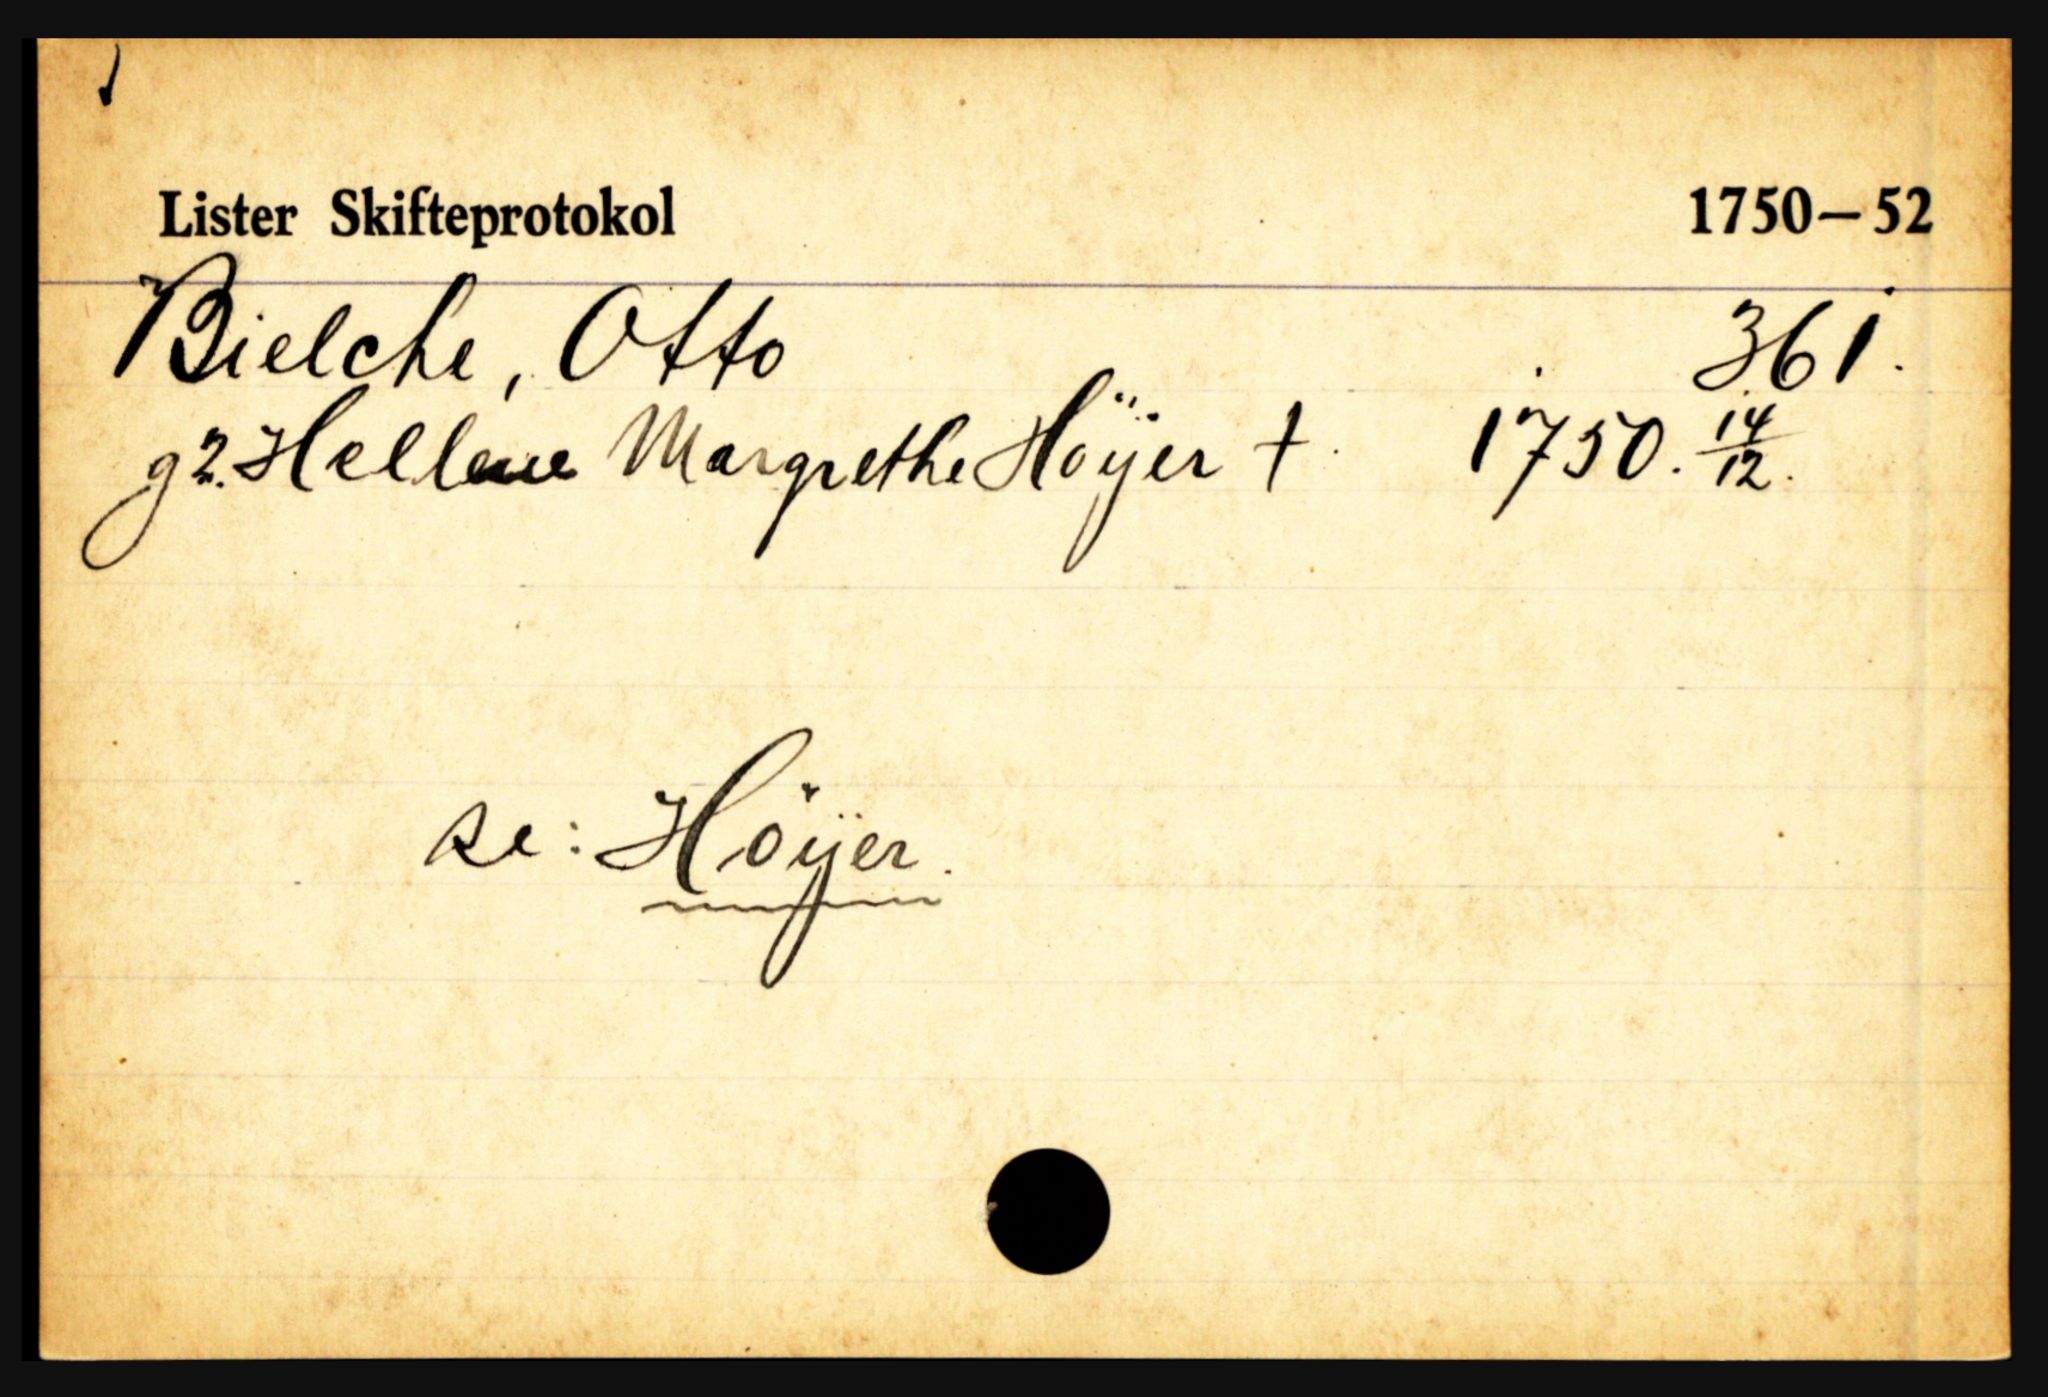 Lister Skifteprotokol 1750–52
Bielche, Otto 361.
g2. Hellene Margrethe Höÿer † 1750. 14/12.
se: Höÿer.